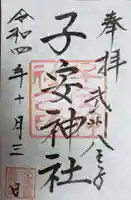 奉拝
武州八王子
子安神社
令和四年十月三日